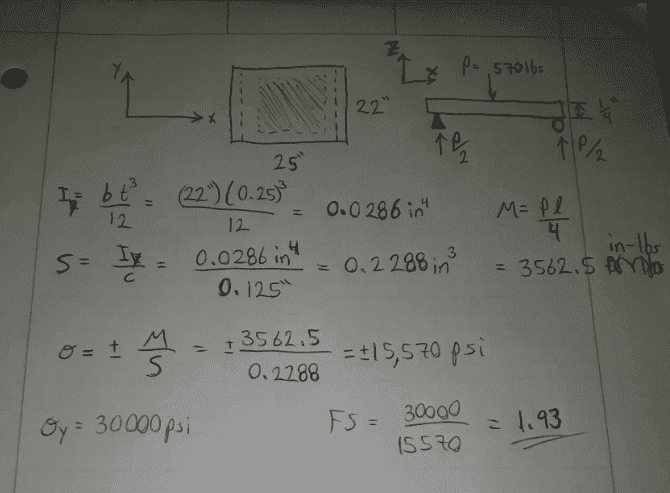 Y
X
22"
25"
Z
X
P= 570lbs
1/4"
↑P/2
↑P/2
Iy= bt³/12 = (22")(0.25)³/12 = 0.0286 in⁴
M= Pl/4
S= Iy/c = 0.0286 in⁴/0.125" = 0.2288 in³
= 3562.5 in-lbs
σ= ± M/S = ± 3562.5/0.2288 = ±15,570 psi
σy = 30000psi
FS = 30000/15570 = 1.93